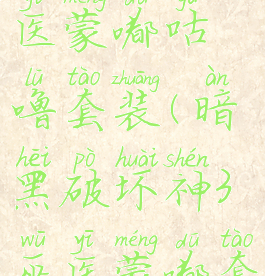 yī méng dū gū
医蒙嘟咕
lū tào zhuāng àn
噜套装(暗
hēi pò huài shén
黑破坏神3
wū yī méng dū tào
巫医蒙嘟套